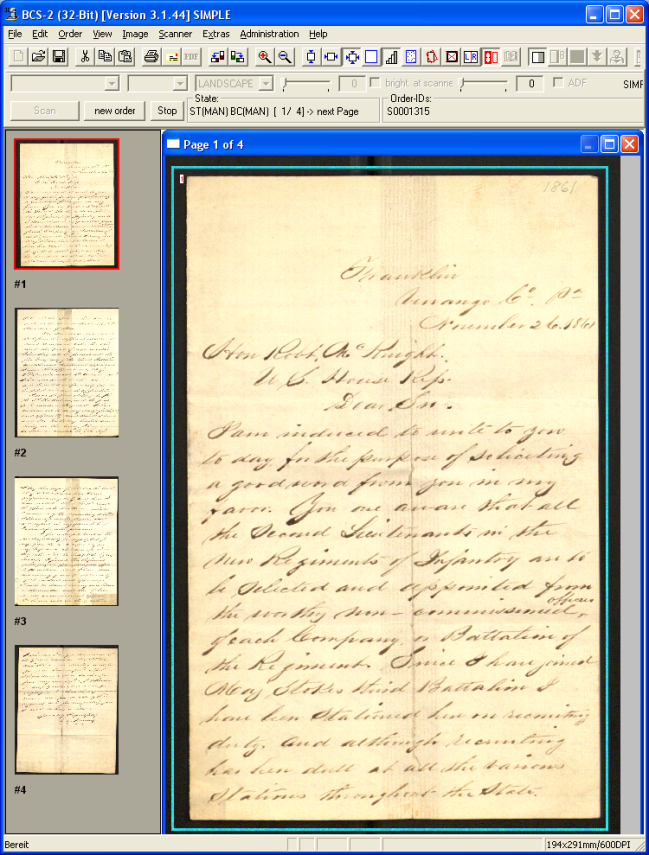 BCS-2 (32-Bit) [Version 3.1.44] SIMPLE
File Edit Order View Image Scanner Extras Administration Help
PDF
L R
LANDSCAPE 0 bright. at scanne 0 ADF SIMF
Scan new order Stop
State:
ST(MAN) BC(MAN) [ 1/ 4] -> next Page
Order-IDs:
S0001315
#1
#2
#3
#4
Page 1 of 4
1
1861
Franklin
Venango Co. Pa
November 26. 1861
Hon Robt, McKnight.
U. S. House Rep.
Dear Sir.
I am induced to write to you
to day for the purpose of soliciting
a good word from you in my
favor. You are aware that all
the Second Lieutenants in, the
new Regiments of Infantry are to
be selected and appointed from
the worthy non-commissioned,
officers
of each Company or Battalion of
the Regiment. Since I have joined
Maj Stokes third Battalion I
have been Stationed here on recruiting
duty. and although recruiting
has been dull at all the various
Stations throughout the State.
Bereit
194x291mm/600DPI